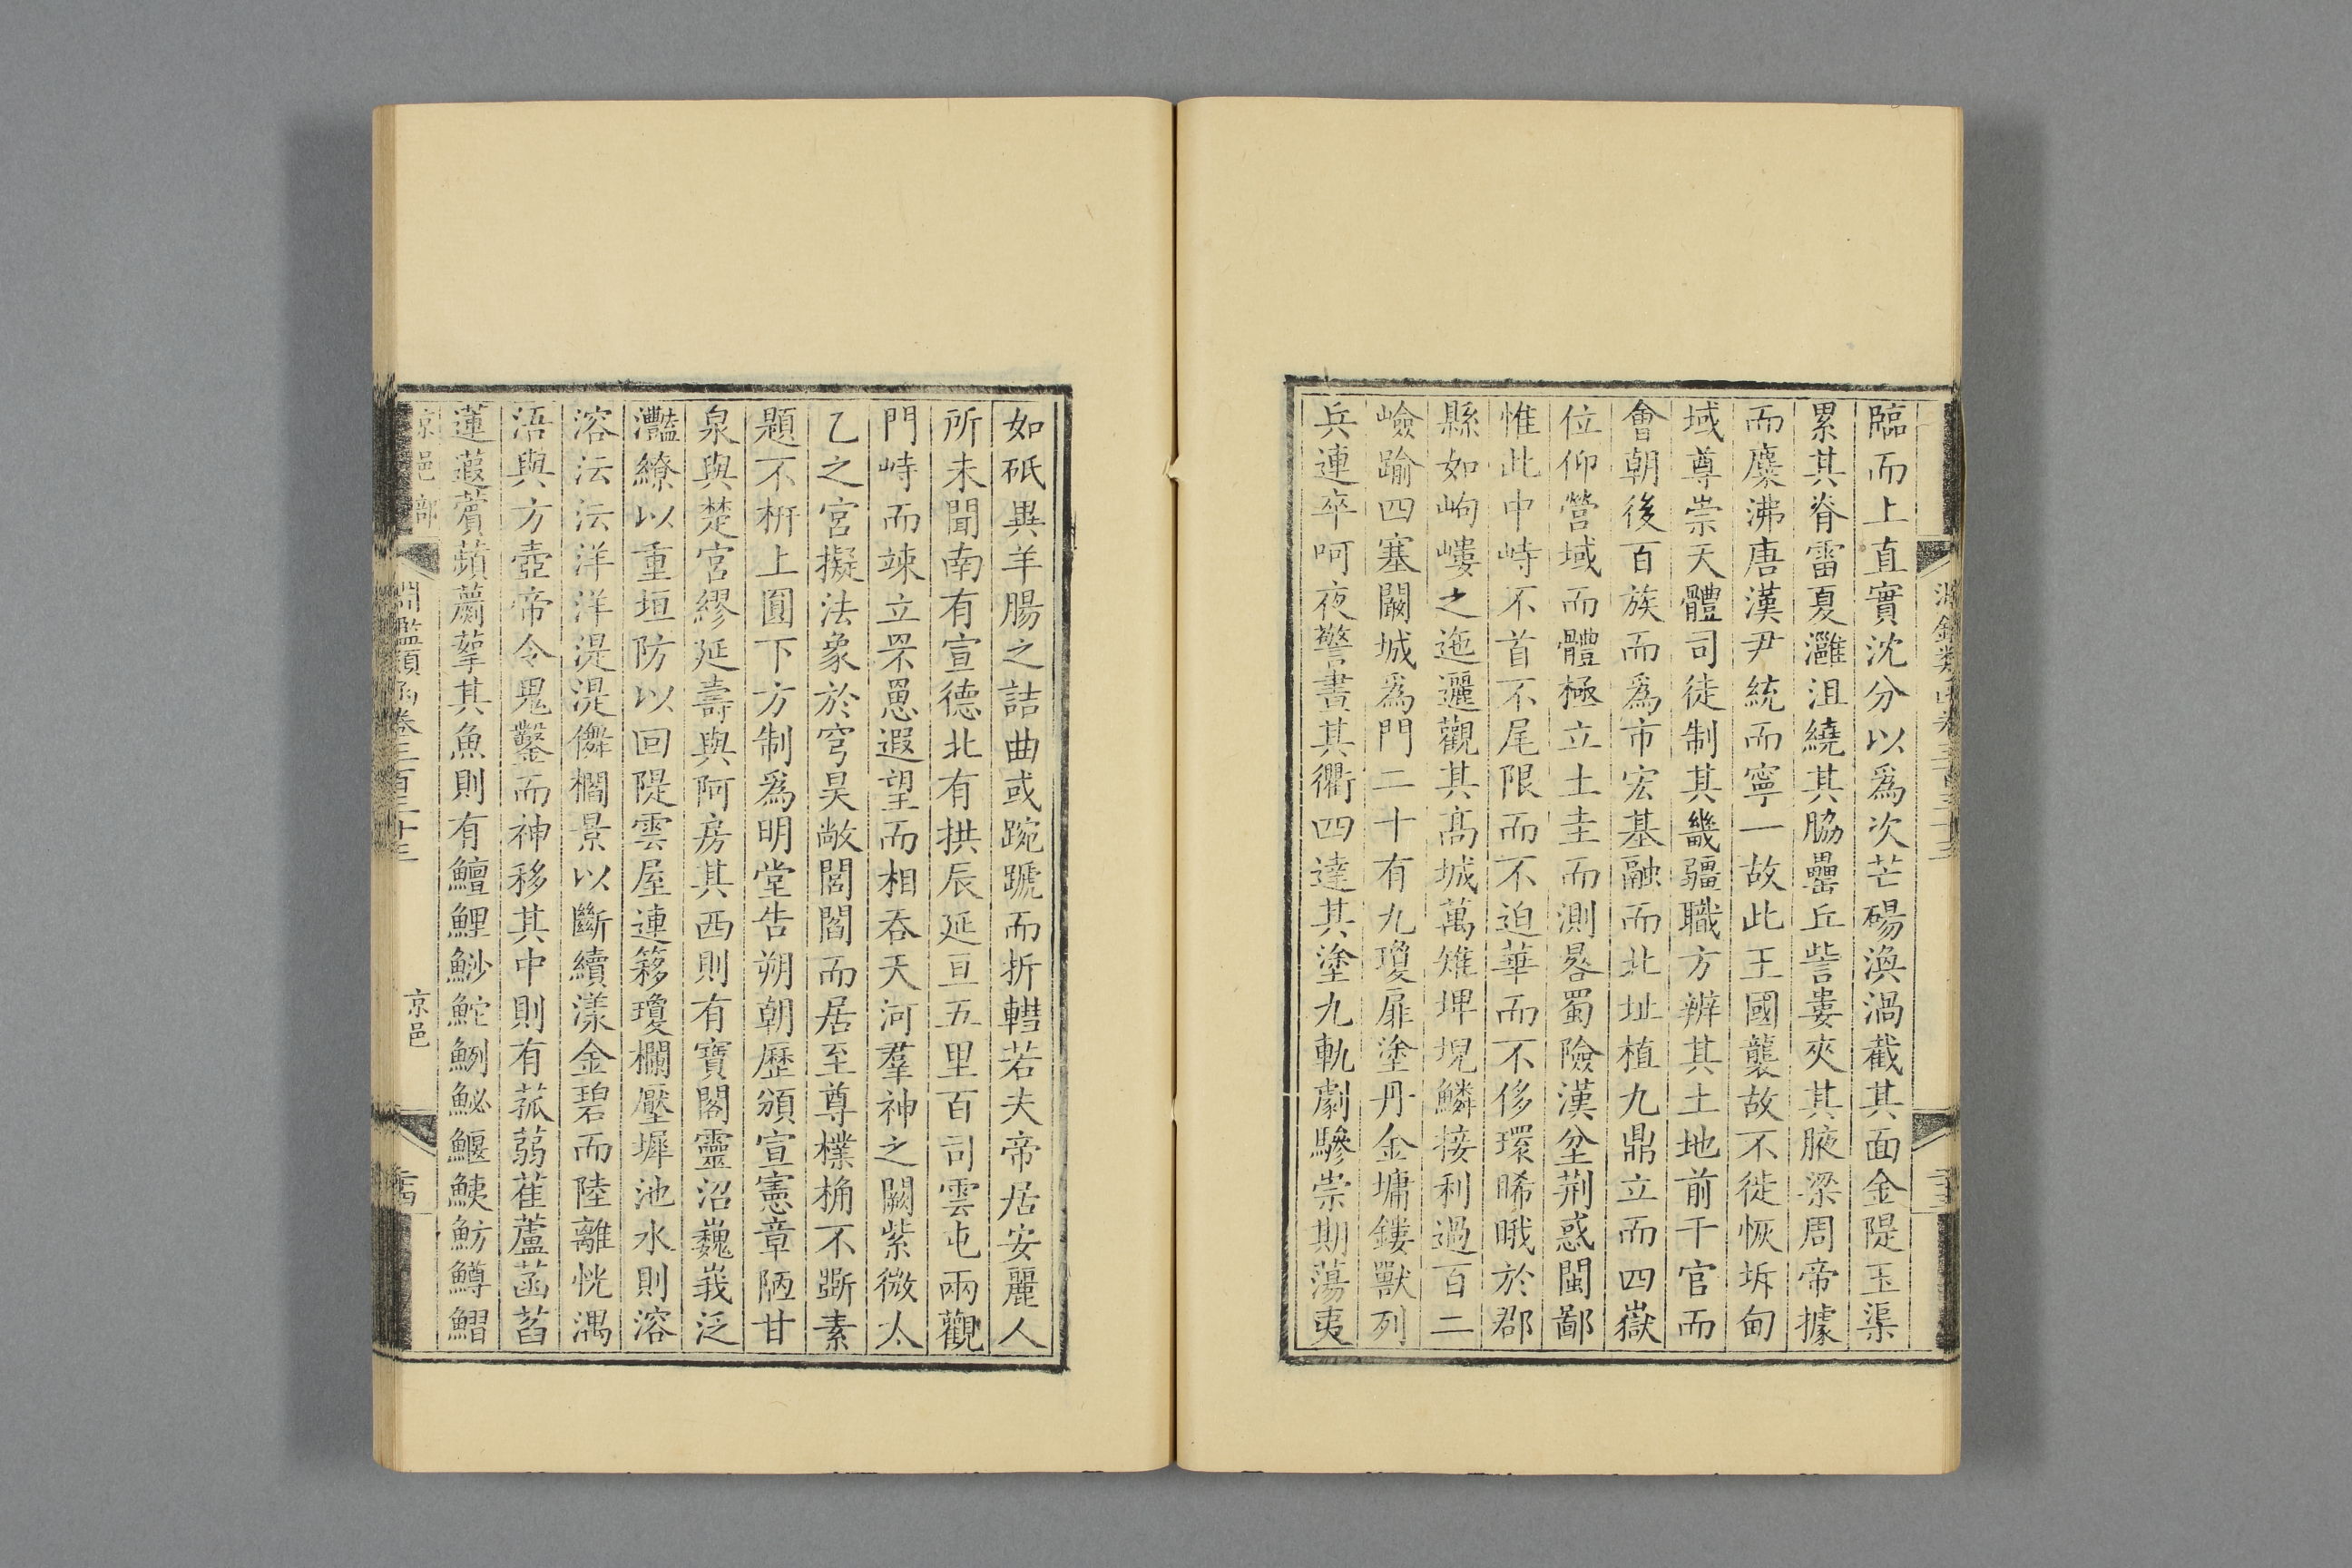 臨而上直實沈分以爲次芒碭渙渦截其面金隄玉渠
累其脊雷夏灉沮繞其脇壘丘訾婁夾其腋梁周帝據
而麋沸唐漢尹統而寧一故此王國襲故不徙恢坼甸
域尊崇天體司徒制其畿疆職方辨其土地前千官而
會朝後百族而爲市宏基融而北址植九鼎立而四嶽
位仰營域而體極立土圭而測晷蜀險漢坌荆惑閩鄙
惟此中峙不首不尾限而不迫華而不侈環睎睋於郡
縣如岣嶁之迤邐觀其高城萬雉埤堄鱗接利過百二
嶮踰四塞闢城爲門二十有九瓊扉塗丹金墉鏤獸列
兵連卒呵夜警晝其衢四達其塗九軌劇驂崇期蕩夷
如砥異羊腸之詰曲或踠蹏而折轊若夫帝居安麗人
所未聞南有宣德北有拱辰延亘五里百司雲屯兩觀
門峙而竦立罘罳遐望而相吞天河羣神之闕紫微太
乙之宮擬法象於穹昊敞閶闔而居至尊樸桷不斲素
題不枅上圓下方制爲明堂告朔朝歷頒宣憲章陋甘
泉與楚宮繆延壽與阿房其西則有寶閣靈沼巍峩泛
灎繚以重垣防以回隄雲屋連簃瓊欄壓墀池水則溶
溶沄沄洋洋湜湜儛櫩景以斷續漾金碧而陸離恍潙
浯與方壺帝令鬼鑿而神移其中則有菰蒻萑蘆菡萏
蓮蕸薲蘋藺䔄其魚則有鱣鯉鯊鮀鮤鮅鰋鮧魴鱒鰼
京邑部
淵鑑類函卷三百三十三
京邑